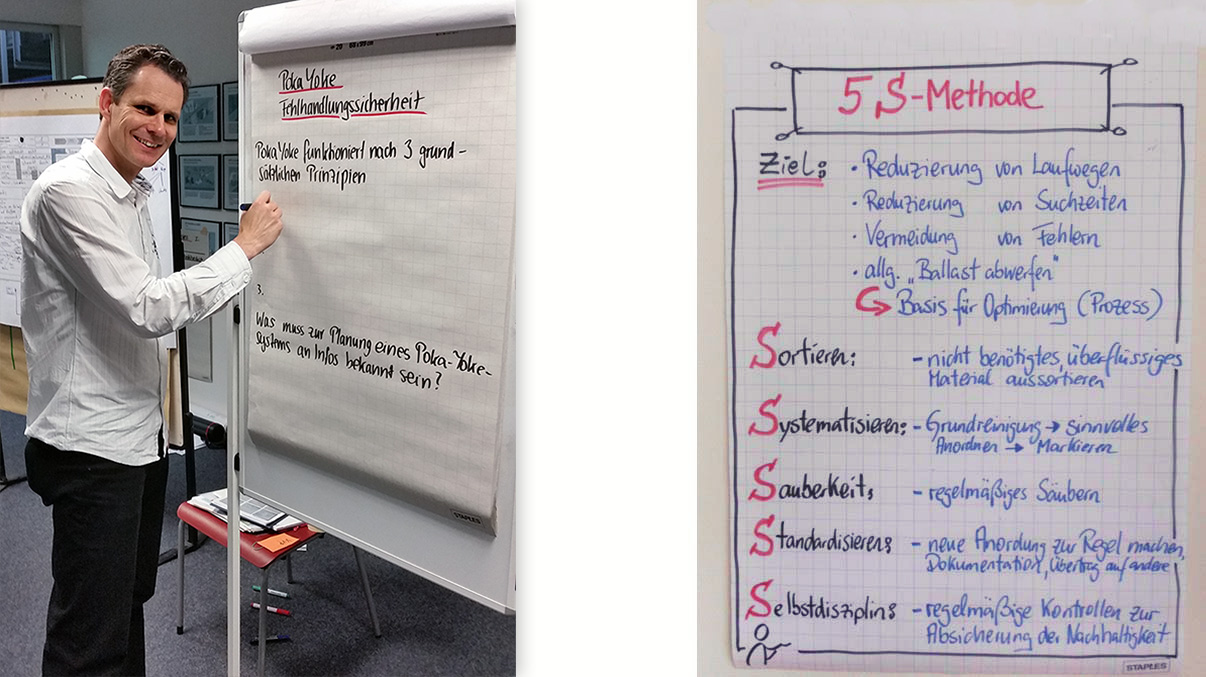 Poka Yoke
Fehlhandlungssicherheit
Poka Yoke funktioniert nach 3 grund-
sätzlichen Prinzipien
3.
Was muss zur Planung eines Poka-Yoke-
systems an Infos bekannt sein?
STAPLES
5 S-Methode
Ziel:
• Reduzierung von Laufwegen
• Reduzierung von Suchzeiten
• Vermeidung von Fehlern
• allg. „Ballast abwerfen"
↳ Basis für Optimierung (Prozess)
Sortieren: - nicht benötigtes, überflüssiges
Material aussortieren
Systematisieren: - Grundreinigung → sinnvolles
Anordnen → Markieren
Sauberkeit: - regelmäßiges Säubern
Standardisieren: - neue Anordung zur Regel machen,
Dokumentation, Übertrag auf andere
Selbstdisziplin: - regelmäßige Kontrollen zur
Absicherung der Nachhaltigkeit
STAPLES